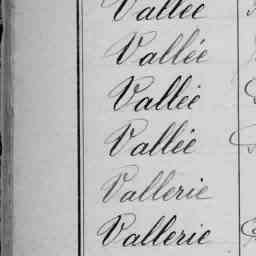 Vallée
Vallée
Vallée
Vallée
Vallerie
Vallerie